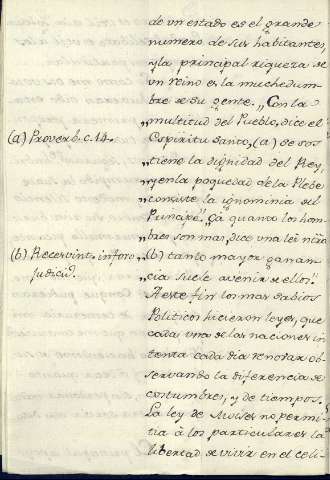 de un estado es el grande
numero de sus habitantes,
y la principal riqueza de
un reino es la muchedum-
bre de su gente. „Con la
„multitud del Pueblo, dice el
(a) Proverb. c. 14.
„Espiritu Santo, (a) se sos-
„tiene la dignidad del Rey,
„y en la poquedad de la Plebe
„consiste la ignominia del
„Principe". „Ca quanto los hom-
„bres son mas, dice una lei ntra
(b) Recesvint. in foro
judicio.
„(b) tanto mayor ganan-
„cia suele avenir de ellos".
A este fin los mas sabios
Politicos hicieron leyes, que
cada una de las naciones in-
tenta cada dia renovar ob-
servando la diferencia de
costumbres, y de tiempos.
La ley de Moises no permi-
tia à los particulares la
libertad de vivir en el celi-